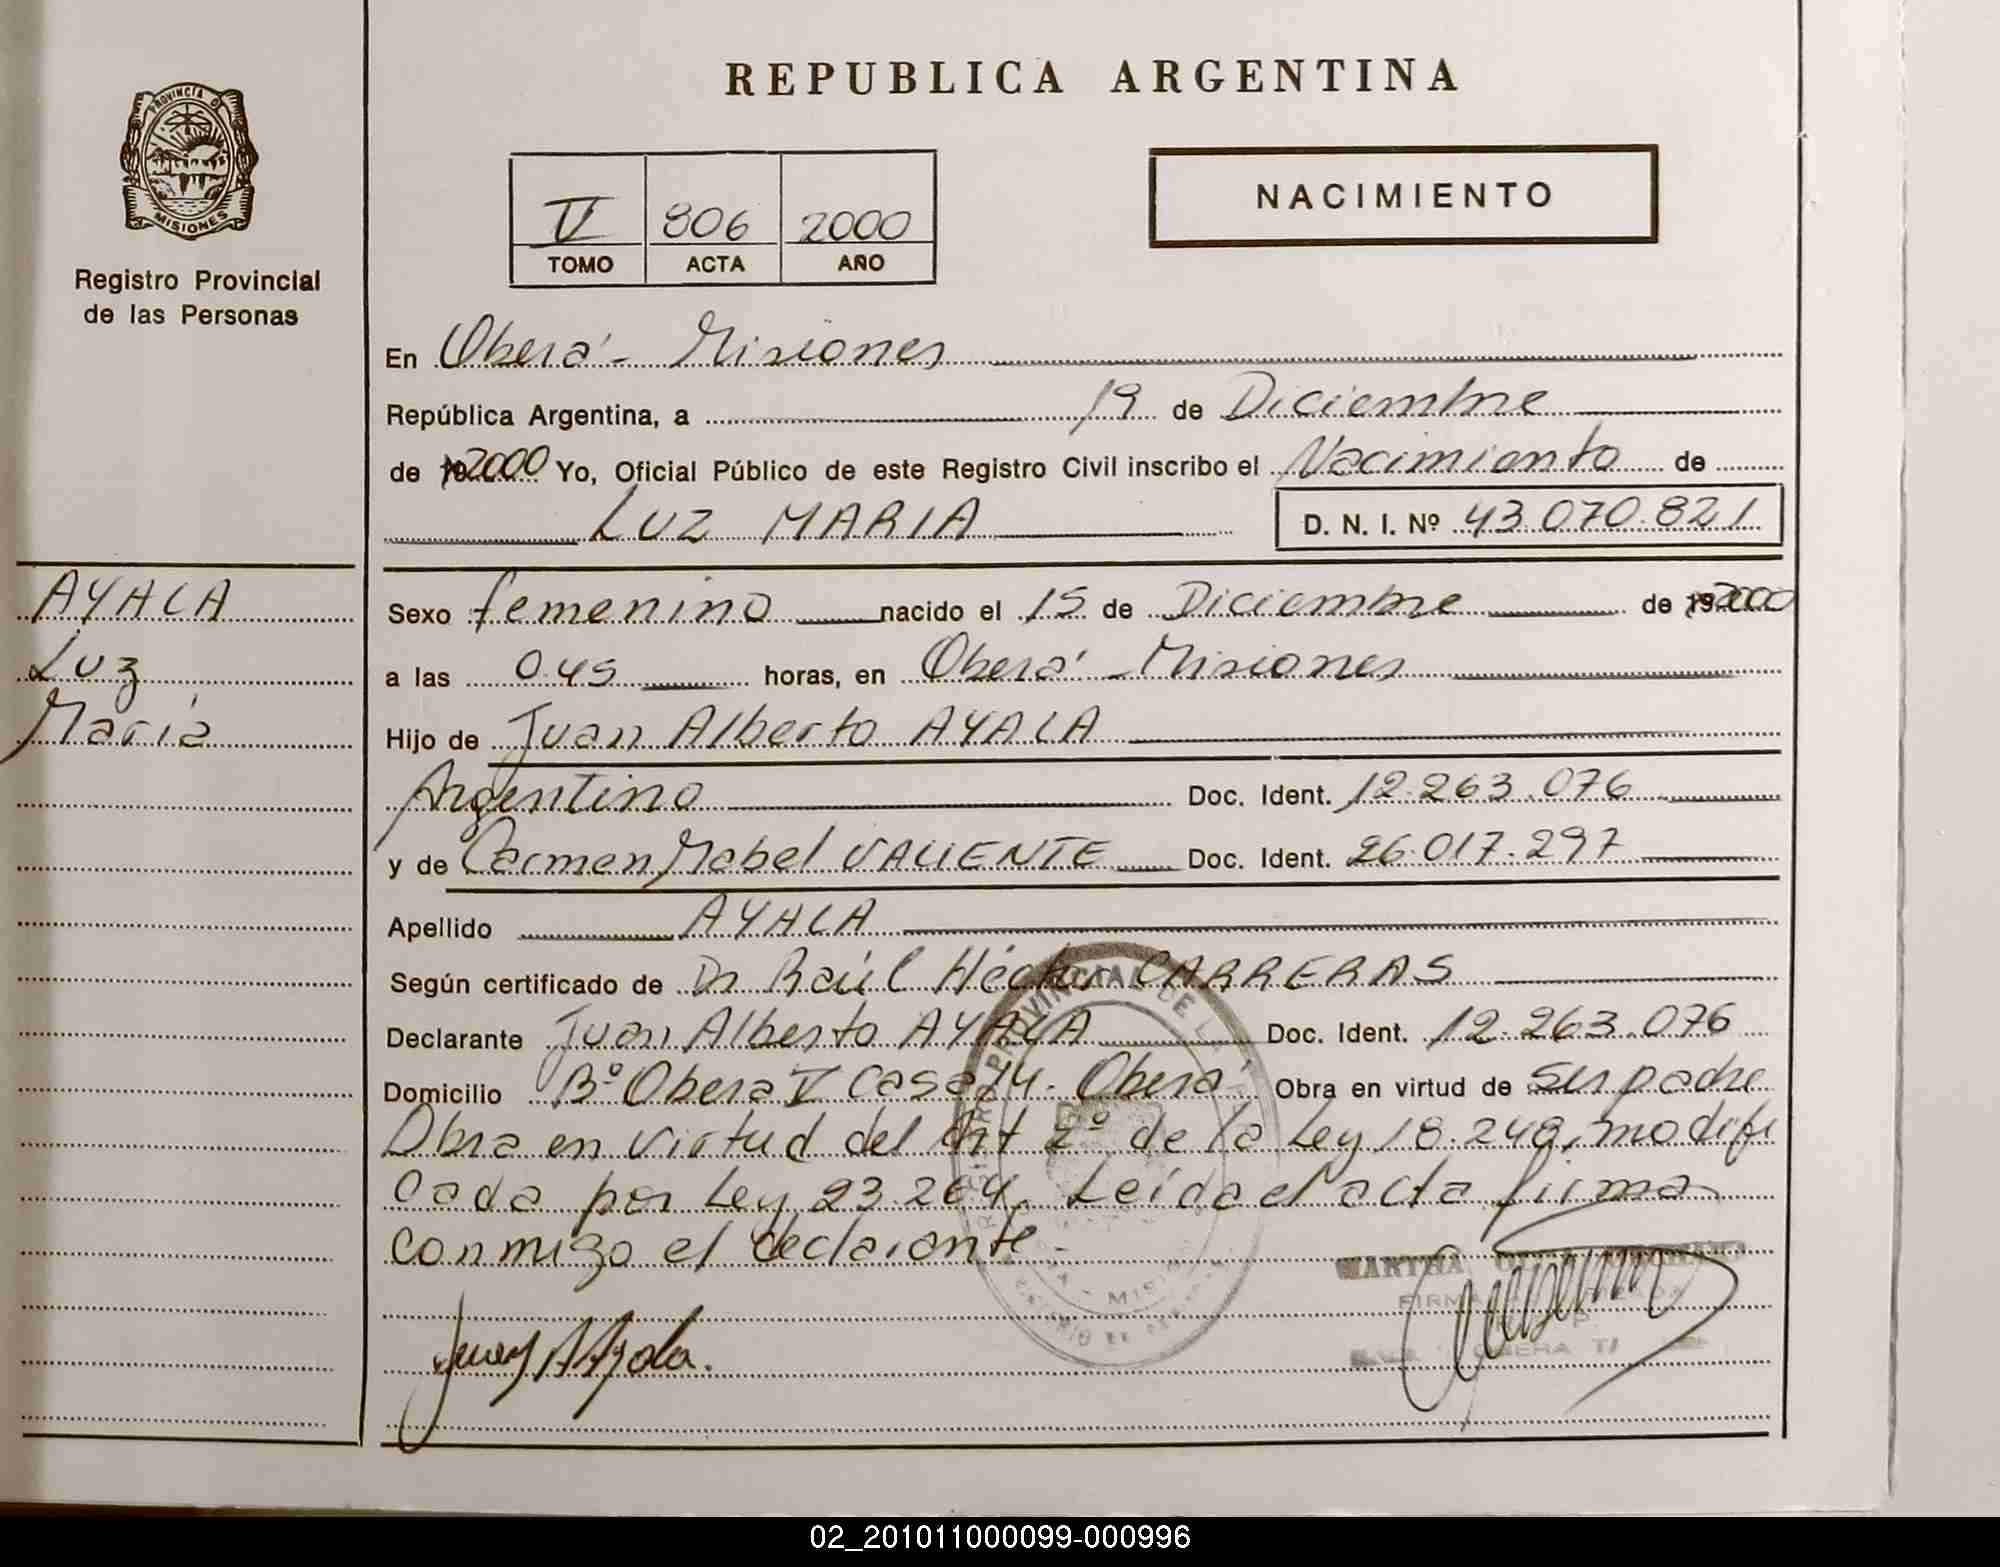 REPUBLICA ARGENTINA
PROVINCIA DE
MISIONES
Registro Provincial
de las Personas
NACIMIENTO
V 806 2000
TOMO ACTA AÑO
En Oberá - Misiones
República Argentina, a 19 de Diciembre
de 2000 Yo, Oficial Público de este Registro Civil inscribo el Nacimiento de
LUZ MARIA D. N. I. Nº 43.070.821
AYALA
Luz
María
Sexo femenino nacido el 15 de Diciembre de 2000
a las 0.45 horas, en Oberá - Misiones
Hijo de Juan Alberto AYALA
Argentino Doc. Ident. 12.263.076
y de Carmen Mabel VALIENTE Doc. Ident. 26.017.297
Apellido AYALA
Según certificado de Dr Raúl Héctor CARRERAS
Declarante Juan Alberto AYALA Doc. Ident. 12.263.076
Domicilio Bº Obera V Casa 14. Obera Obra en virtud de ser padre
Obra en virtud del Art 2º de la Ley 18.248, modifi
cada por Ley 23.264. Leída el acta firma
conmigo el declarante.
MARTHA
FIRMA
OBERA
02_201011000099-000996